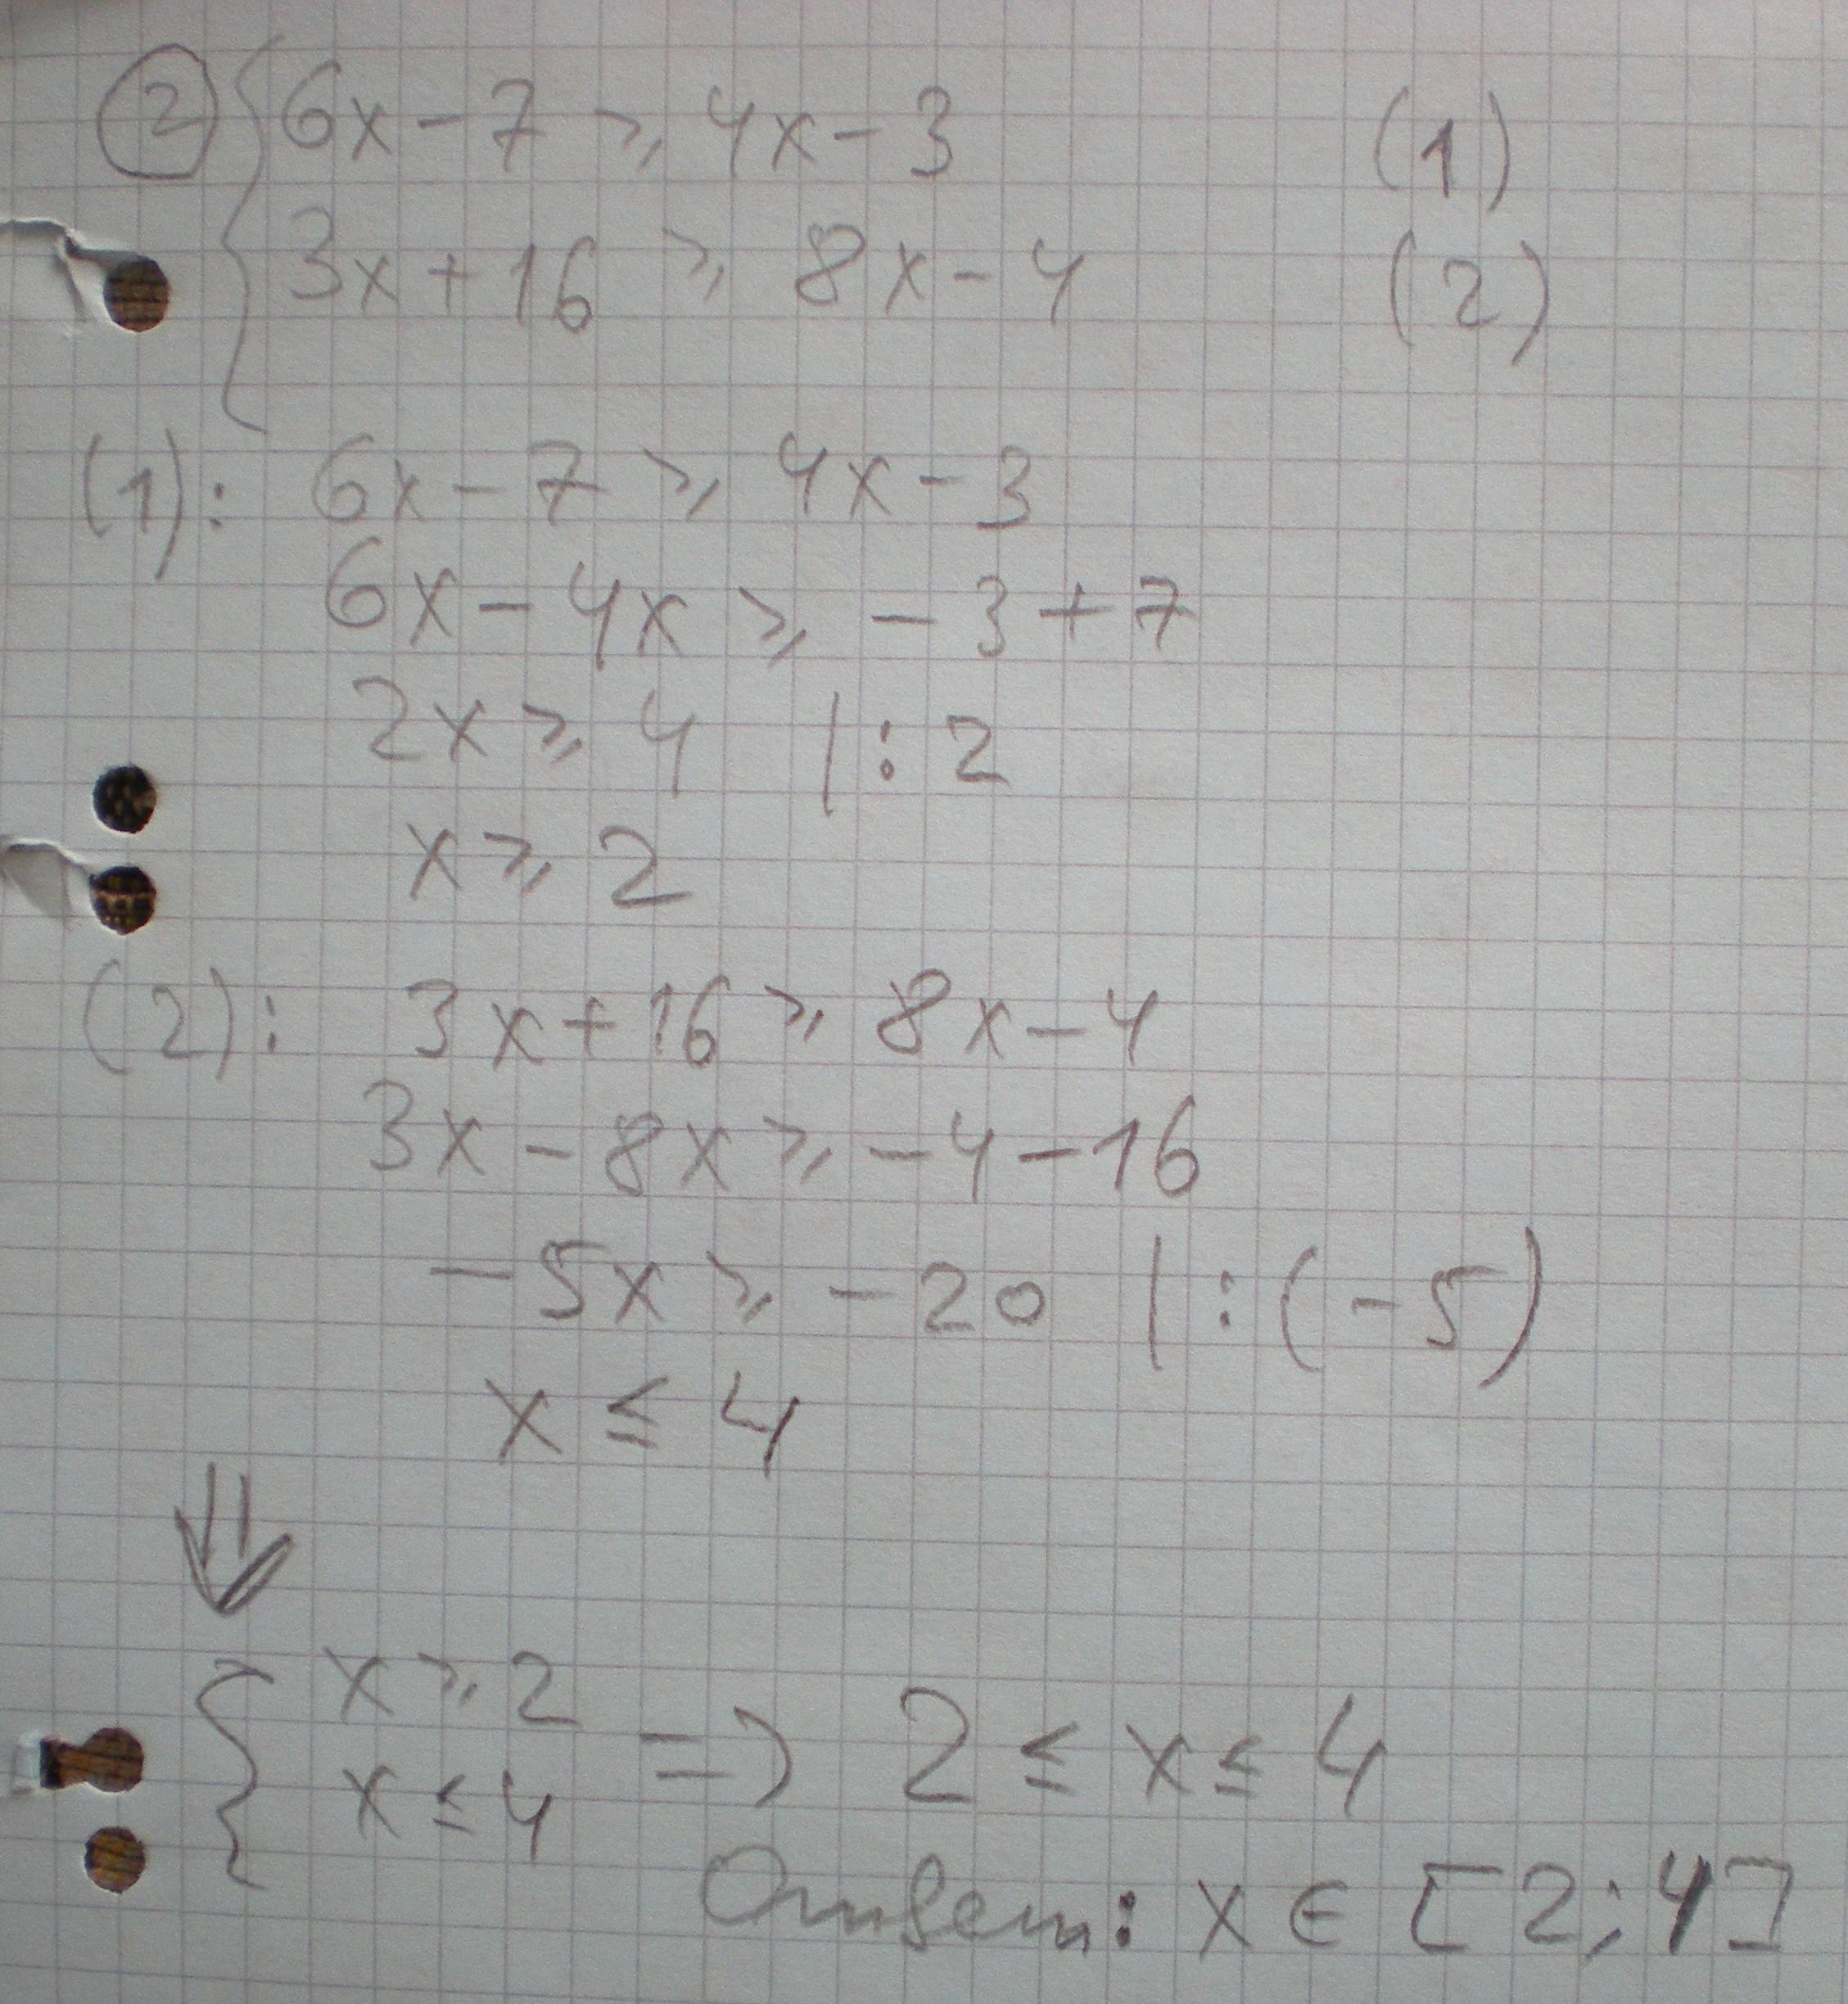 2 { 6x - 7 ⩾ 4x - 3 (1)
3x + 16 ⩾ 8x - 4 (2)
(1): 6x - 7 ⩾ 4x - 3
6x - 4x ⩾ - 3 + 7
2x ⩾ 4 | : 2
x ⩾ 2
(2): 3x + 16 ⩾ 8x - 4
3x - 8x ⩾ - 4 - 16
- 5x ⩾ - 20 | : (-5)
x ≤ 4
⇓
{ x ⩾ 2
x ≤ 4 ⇒ 2 ≤ x ≤ 4
Ответ: x ∈ [2; 4]